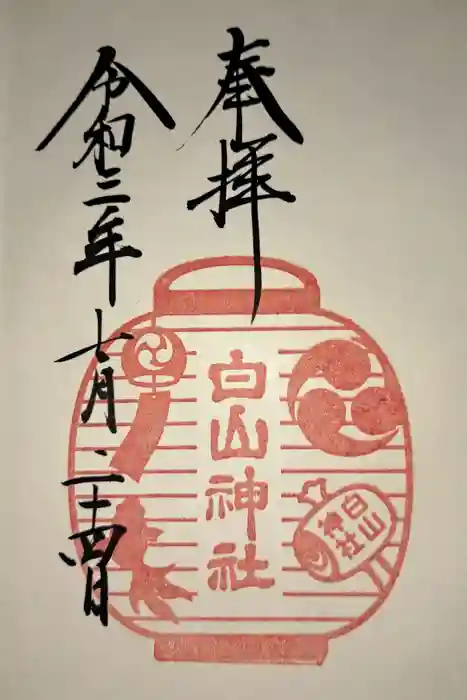 奉拝
令和三年七月二十四日
白山神社
白山
神社